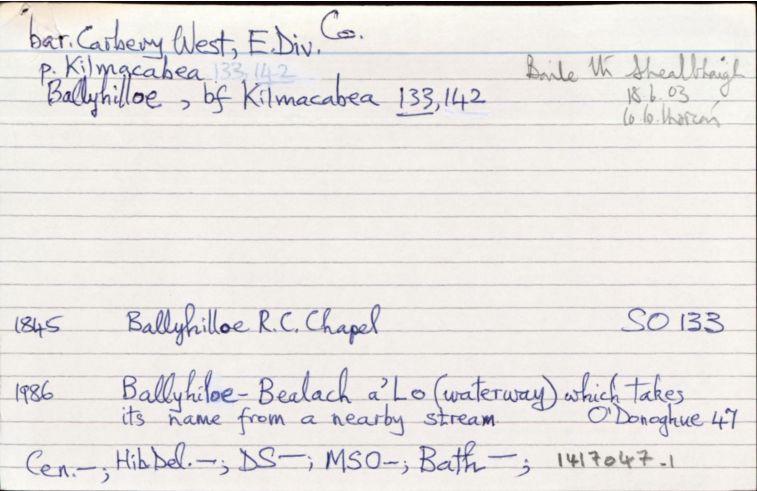 bar. Carbery West, E. Div. Co.
p. Kilmacabea 133, 142
Ballyhilloe, bf Kilmacabea 133, 142
Baile Uí Shealbhaigh
18.6.03
1845 Ballyhilloe R.C. Chapel SO 133
1986 Ballyhiloe - Bealach a' Lo (waterway) which takes
its name from a nearby stream O'Donoghue 47
Cen. —; Hib. Del. —; DS —; MSO —; Bath —; 1417047.1